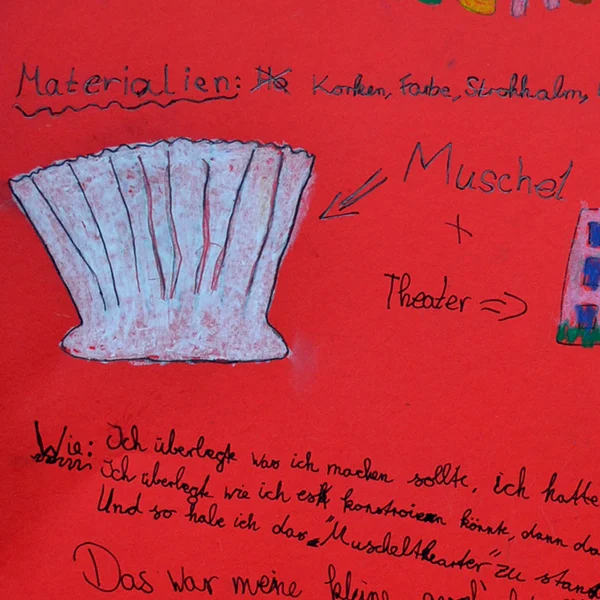 Materialien: Korken, Farbe, Strohhalm,
Muschel
+
Theater =>
Wie: Ich überlegte was ich machen sollte, ich hatte
Ich überlegte wie ich es konstroieren könnte, dann
Und so habe ich das "Muscheltheater" zu stand
Das war meine kleine